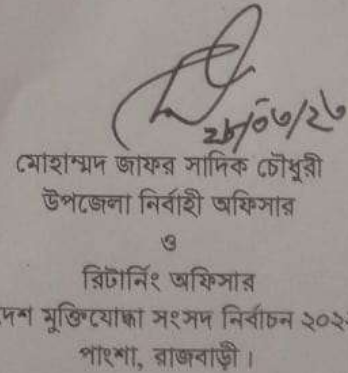 ২৮/০৩/২৩
মোহাম্মদ জাফর সাদিক চৌধুরী
উপজেলা নির্বাহী অফিসার
ও
রিটার্নিং অফিসার
মুক্তিযোদ্ধা সংসদ নির্বাচন
পাংশা, রাজবাড়ী।